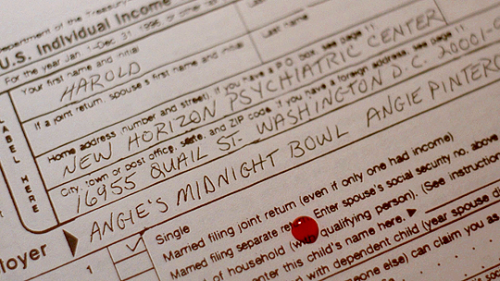 Department of the Treasury
U.S. Individual Income
For the year Jan 1-Dec 31, 1998, or other
Last
Your first name and initial
HAROLD
Last name
If a joint return, spouse's first name and initial
Home address (number and street). If you have a P.O. box, see page 11
NEW HORIZON PSYCHIATRIC CENTER
City, town or post office, state, and ZIP code. If you have a foreign address, see page 11
16955 QUAIL ST. WASHINGTON D.C. 20001-
ANGIE'S MIDNIGHT BOWL ANGIE PINTERO
LABEL HERE
loyer
1
Single
Married filing joint return (even if only one had income)
Married filing separate Enter spouse's social security no. above
of household (with qualifying person). (See instruction
enter this child's name here.
with dependent child (year spouse
else) can claim you as